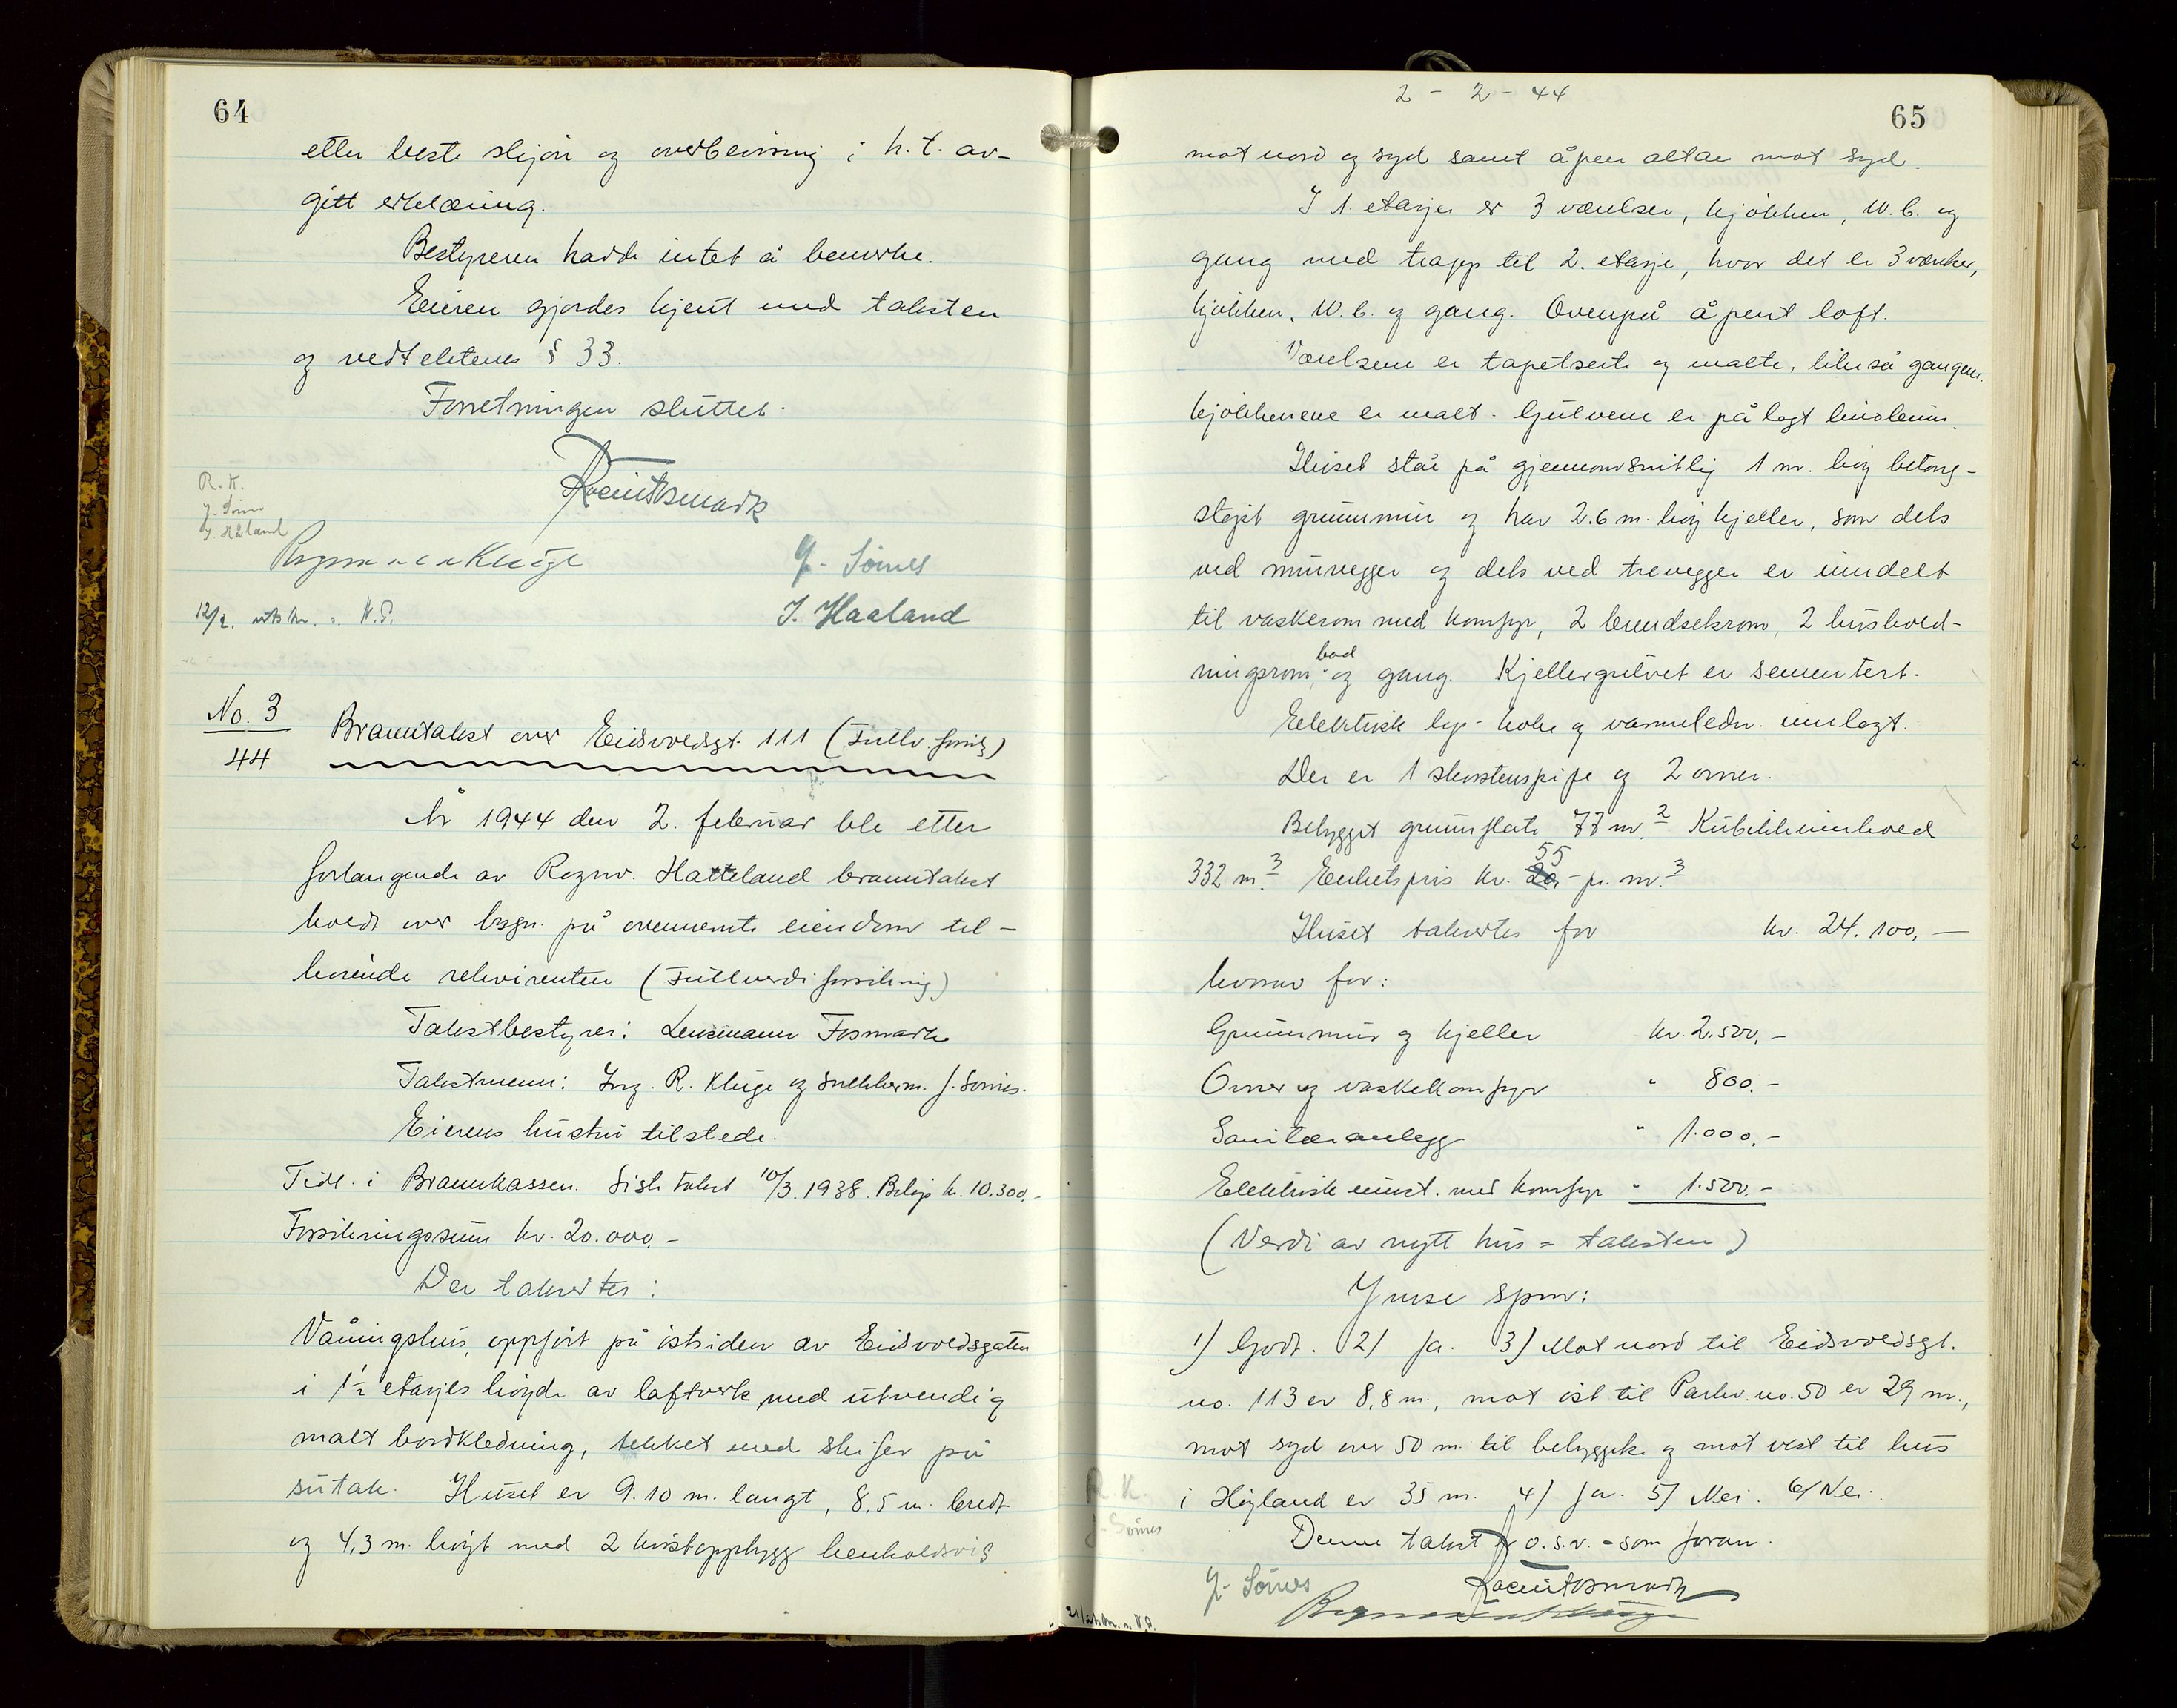 64
etter beste skjön og overbevisning i h.t. av-
gitt erklæring.
Bestyreren hadde intet å bemerke.
Eieren gjordes kjent med taksten
og vedtektenes § 33.
Forretningen sluttet.
R. K.
J. Sömes
J. Håland
J. Sömes
12/2. utskr. s. N.P.
J. Haaland
No. 3
44
Branntakst over Eidsvoldsgt. 111 (Fullv. forsikr)
År 1944 den 2. februar ble etter
forlangende av Regnv. Hatteland branntakst
holdt over bygn. på ovennevnte eiendom til-
hörende rekvirenten (Fullverdiforsikring)
Takstbestyrer: Lensmann Fosmark
Takstmenn: Ing. R. Kluge og snekkerm. J. Sömes.
Eierens hustru tilstede.
Tidl. i Brannkassen. Siste takst 10/3. 1938. Belöp kr. 10.300,-
Forsikringssum kr. 20.000,-
Der takseres:
Våningshus, oppfört på östsiden av Eidsvoldsgaten
i 1½ etasjes höyde av laftverk med utvendig
malt bordkledning, tekket med skifer på
sutak. Huset er 9.10 m. langt, 8,5 m. bredt
og 4,3 m. höyt med 2 kvistoppbygg henholdsvis
2 - 2 - 44
65
mot nord og syd samt åpen altan mot syd.
I 1. etasje er 3 værelser, kjökken, W.C. og
gang med trapp til 2. etasje, hvor det er 3 værelser,
kjökken, W.C. og gang. Ovenpå åpent loft.
Værelsene er tapetserte og malte, likeså gangene.
Kjökkenene er malt. Gulvene er pålagt linoleum.
Huset står på gjennomsnitlig 1 m. höy betong-
stöpt grunnmur og har 2.6 m. höy kjeller, som dels
ved murvegger og dels ved trevegger er inndelt
til vaskerom med komfyr, 2 brendselsrom, 2 hushold-
bad
ningsrom, og gang. Kjellergulvet er sementert.
Elektrisk lys- koke og varmeledn. innlagt.
Der er 1 skorstenspipe og 2 ovner.
Bebygget grunnflate 77 m.² Kubikkinnhold
55
332 m.³ Enhetspris kr. 20,- pr. m.³
Huset takseres for kr. 24.100,-
hvorav for:
Grunnmur og kjeller kr. 2.500,-
Ovner og vaskekomfyr " 800,-
Sanitæranlegg " 1.000,-
Elektrisk innst. med komfyr " 1.500,-
(Verdi av nytt hus = taksten)
Ymse spm:
1) Godt. 2) Ja. 3) Mot nord til Eidsvoldsgt.
no. 113 er 8,8 m., mot öst til Parkv. no. 50 er 29 m.,
mot syd over 50 m. til bebyggelse og mot vest til hus
i Höyland er 35 m. 4) Ja. 5) Nei. 6) Nei.
R. K.
J. Sömes
Denne takst o.s.v. - som foran.
J. Sömes